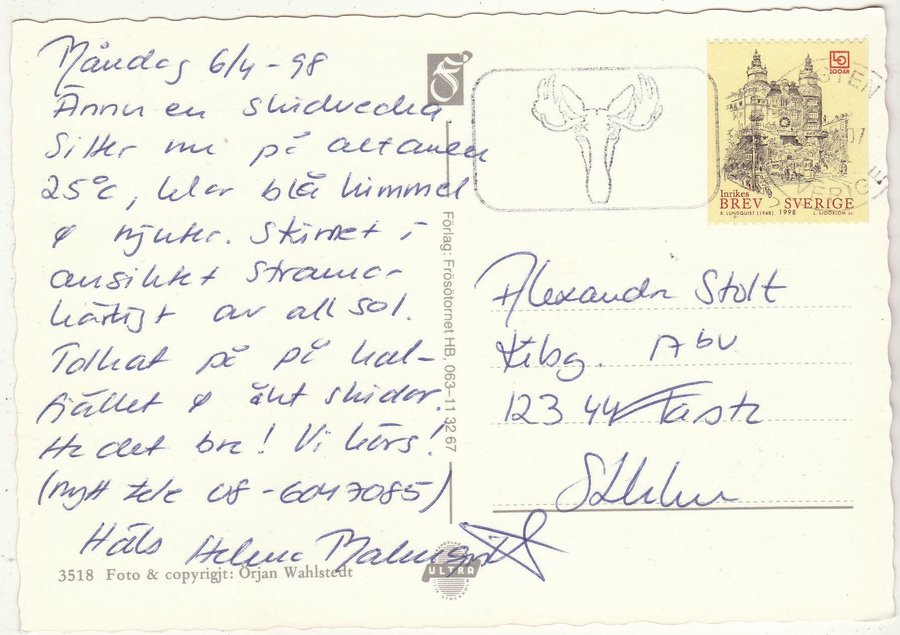 Måndag 6/4 - 98
Ännu en skidvecka.
Sitter nu på altanen
25°C, klar blå himmel
& njuter. Skinnet i
ansiktet stramar
härligt av all sol.
Tolkat på på kal-
fjället & åkt skidor.
Ha det bra! Vi hörs!
(nytt tele 08-6047085)
Häls Helena
3518 Foto & copyrigjt: Örjan Wahlstedt
Förlag: Frösötornet HB, 063–11 32 67
ULTRA
LO
100 ÅR
Inrikes
BREV SVERIGE
B. LUNDQUIST (1948) 1998 L. SJÖBLOM SC.
SVERIGE
Alexandra Stolt
123 44
Sthlm